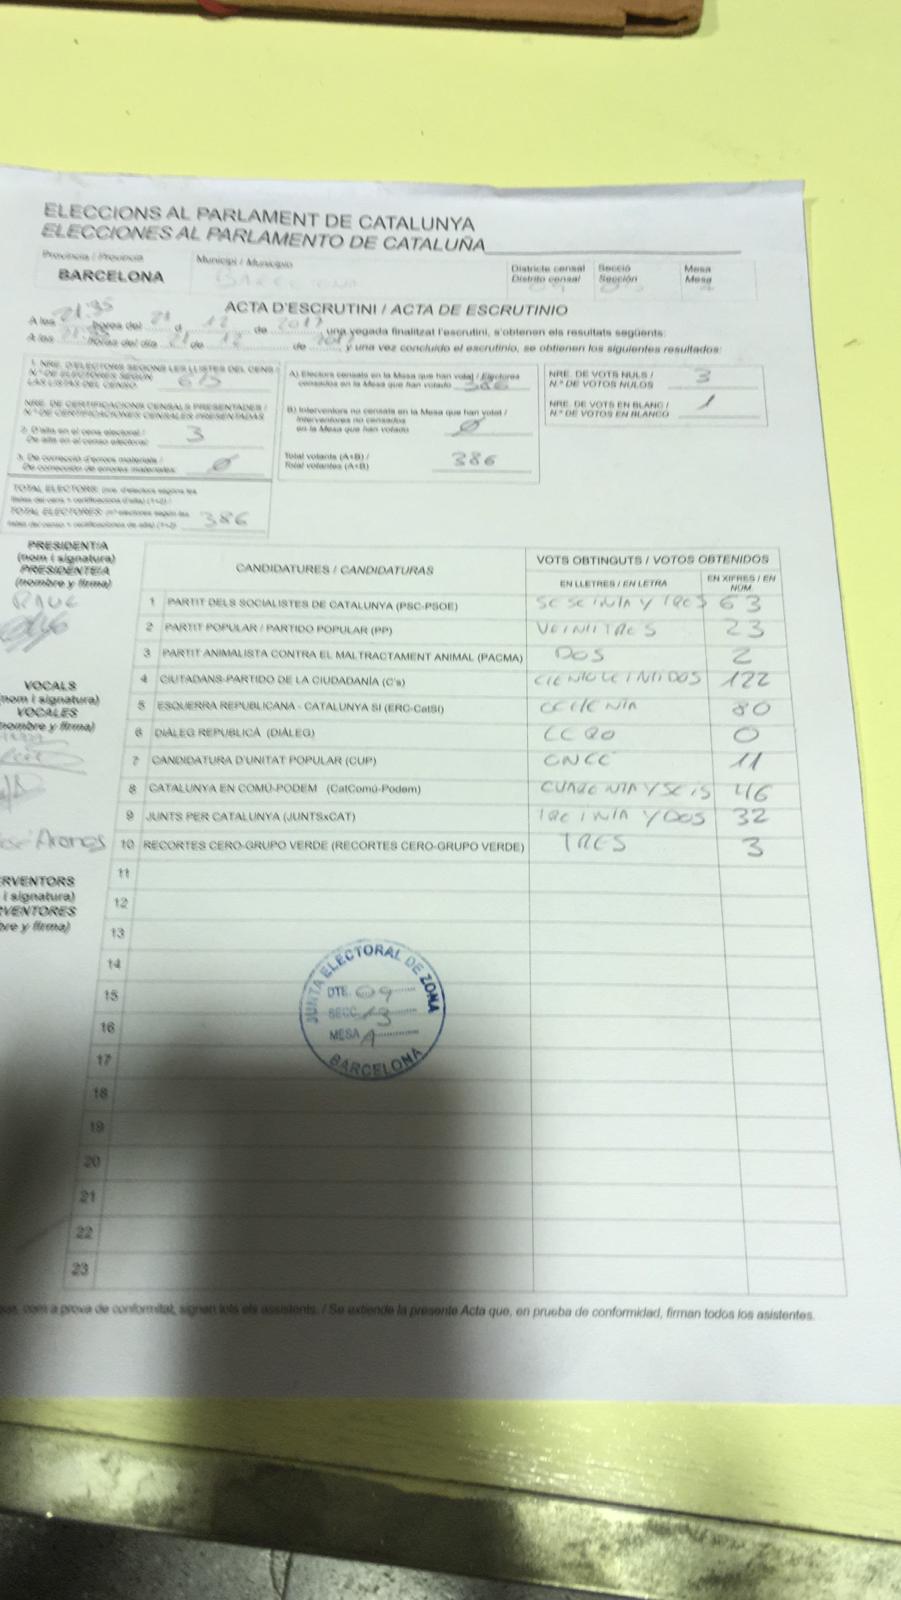 ELECCIONS AL PARLAMENT DE CATALUNYA
ELECCIONES AL PARLAMENTO DE CATALUÑA
Província / Provincia
BARCELONA
Municipi / Municipio
BARCELONA
Districte censal
Distrito censal
Secció
Sección
Mesa
Mesa
ACTA D'ESCRUTINI / ACTA DE ESCRUTINIO
A les 21:35 hores del 21 d 12 de 2017 una vegada finalitzat l'escrutini, s'obtenen els resultats següents:
A las 21:35 horas del día 21 de 12 de 2017 y una vez concluido el escrutinio, se obtienen los siguientes resultados:
1. NRE. D'ELECTORS SEGONS LES LLISTES DEL CENS /
N.º DE ELECTORES SEGÚN
LAS LISTAS DEL CENSO
NRE. DE CERTIFICACIONS CENSALS PRESENTADES /
N.º DE CERTIFICACIONES CENSALES PRESENTADAS
2. D'alta en el cens electoral /
De alta en el censo electoral: 3
3. De correcció d'errors materials /
De corrección de errores materiales: Ø
TOTAL ELECTORS: (nre. d'electors segons les
llistes del cens + certificacions d'alta) (1+2) /
TOTAL ELECTORES: (nº electores según las
listas del censo + certificaciones de alta) (1+2) 386
A) Electors censats en la Mesa que han votat / Electores
censados en la Mesa que han votado 386
B) Interventors no censats en la Mesa que han votat /
Interventores no censados
en la Mesa que han votado Ø
Total votants (A+B) /
Total votantes (A+B) 386
NRE. DE VOTS NULS /
N.º DE VOTOS NULOS 3
NRE. DE VOTS EN BLANC /
N.º DE VOTOS EN BLANCO 1
PRESIDENT/A
(nom i signatura)
PRESIDENTE/A
(nombre y firma)
VOCALS
(nom i signatura)
VOCALES
(nombre y firma)
José Aranos
ERVENTORS
i signatura)
RVENTORES
bre y firma)
CANDIDATURES / CANDIDATURAS
VOTS OBTINGUTS / VOTOS OBTENIDOS
EN LLETRES / EN LETRA
EN XIFRES / EN NÚM.
1 PARTIT DELS SOCIALISTES DE CATALUNYA (PSC-PSOE) SESEINTA Y TRES 63
2 PARTIT POPULAR / PARTIDO POPULAR (PP) VEINTITRES 23
3 PARTIT ANIMALISTA CONTRA EL MALTRACTAMENT ANIMAL (PACMA) DOS 2
4 CIUTADANS-PARTIDO DE LA CIUDADANÍA (C's) CIENTOVEINTIDOS 122
5 ESQUERRA REPUBLICANA - CATALUNYA SÍ (ERC-CatSí) OCHENTA 80
6 DIÀLEG REPUBLICÀ (DIÀLEG) CERO 0
7 CANDIDATURA D'UNITAT POPULAR (CUP) ONCE 11
8 CATALUNYA EN COMÚ-PODEM (CatComú-Podem) CUARENTA Y SEIS 46
9 JUNTS PER CATALUNYA (JUNTSxCAT) TREINTA Y DOS 32
10 RECORTES CERO-GRUPO VERDE (RECORTES CERO-GRUPO VERDE) TRES 3
11
12
13
14
15
16
17
18
19
20
21
22
23
JUNTA ELECTORAL DE ZONA
DTE. 09
SECC. 13
MESA A
BARCELONA
que, com a prova de conformitat, signen tots els assistents. / Se extiende la presente Acta que, en prueba de conformidad, firman todos los asistentes.